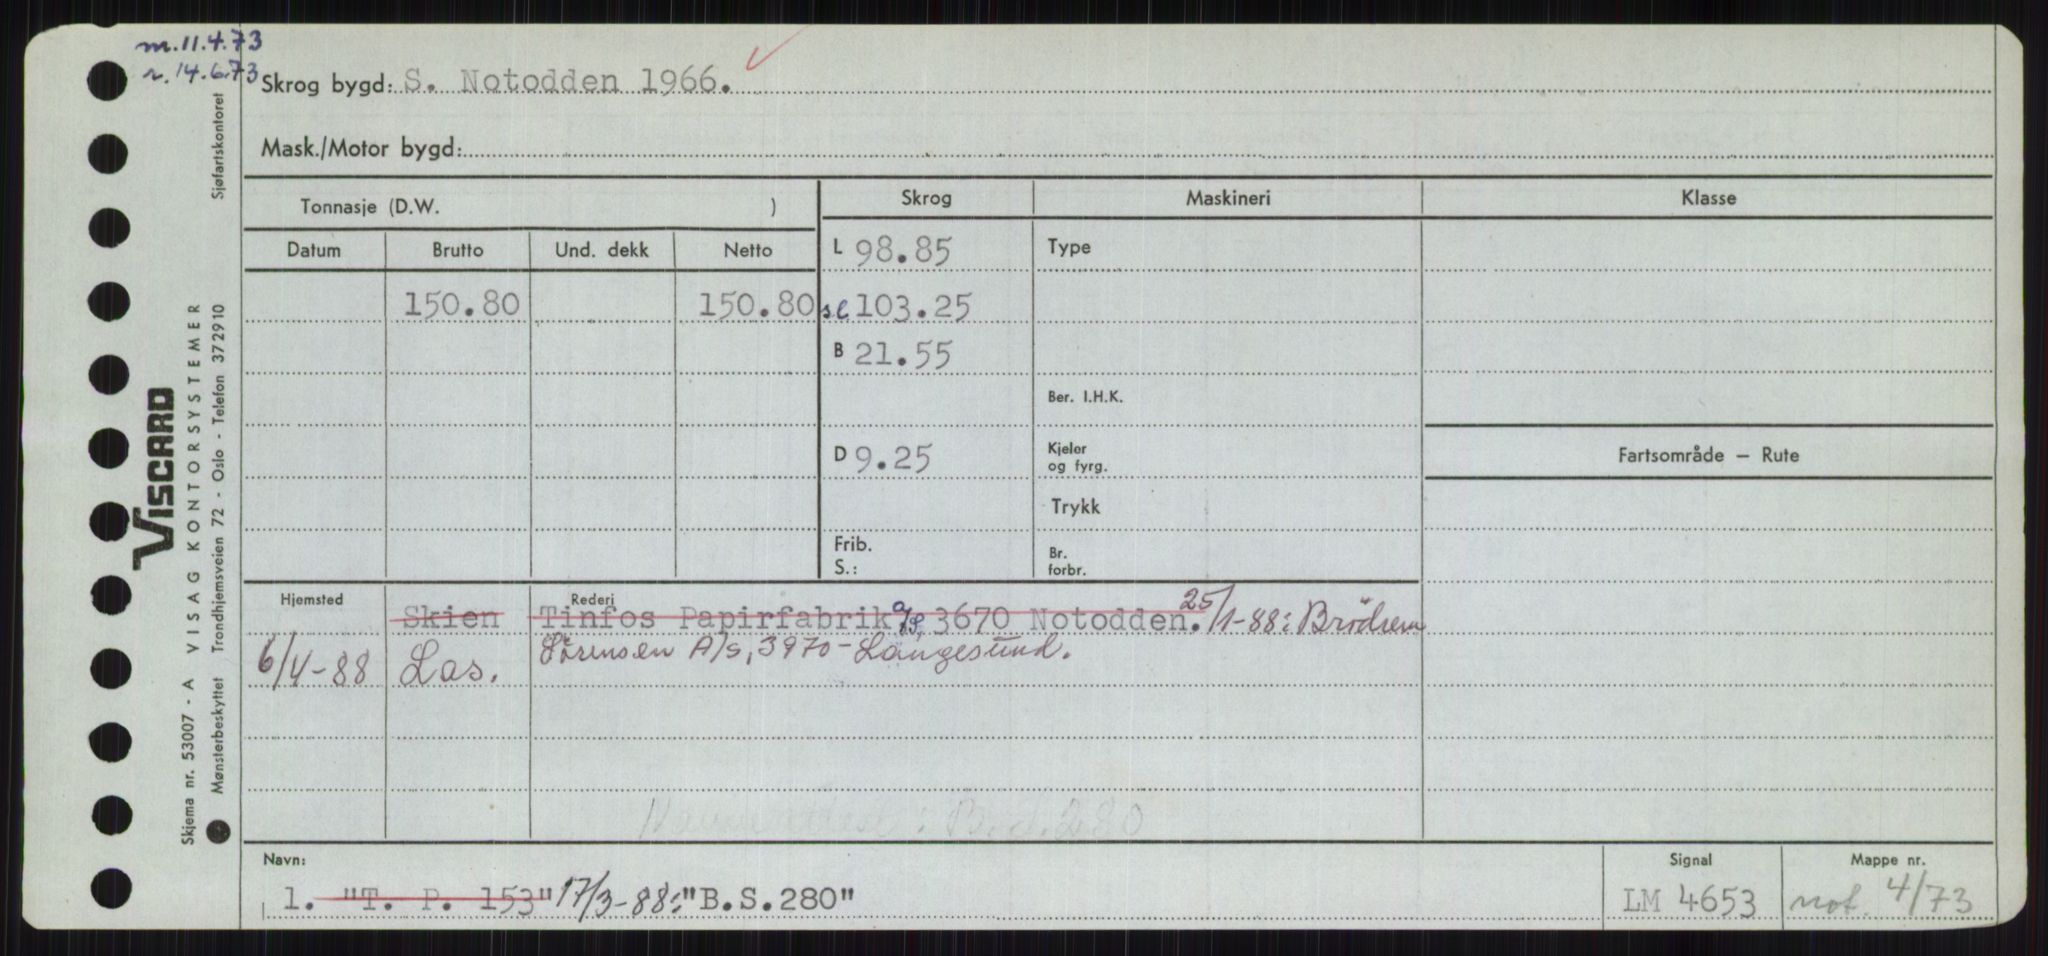 m.11.4.73
r. 14.6.73
Skrog bygd: S. Notodden 1966.
Mask./Motor bygd:
Tonnasje (D.W. )
Skrog
Maskineri
Klasse
Datum
Brutto
Und. dekk
Netto
L 98.85
Type
150.80
150.80
sl 103.25
B 21.55
Ber. I.H.K.
D 9.25
Kjeler
og fyrg.
Fartsområde — Rute
Trykk
Frib.
S.:
Br.
forbr.
Hjemsted
Rederi
Skien
Tinfos Papirfabrik a/s, 3670 Notodden. 25/1-88: Brödrene
6/4-88 Las.
Sörensen A/s, 3970 - Langesund.
B.S.280
Navn:
1. "T. P. 153" 17/3-88: "B.S.280"
Signal
LM 4653
Mappe nr.
not. 4/73
Sjøfartskontoret
VISCARD
VISAG KONTORSYSTEMER
Skjema nr. 53007 - A
Mønsterbeskyttet Trondhjemsveien 72 - Oslo - Telefon 372910